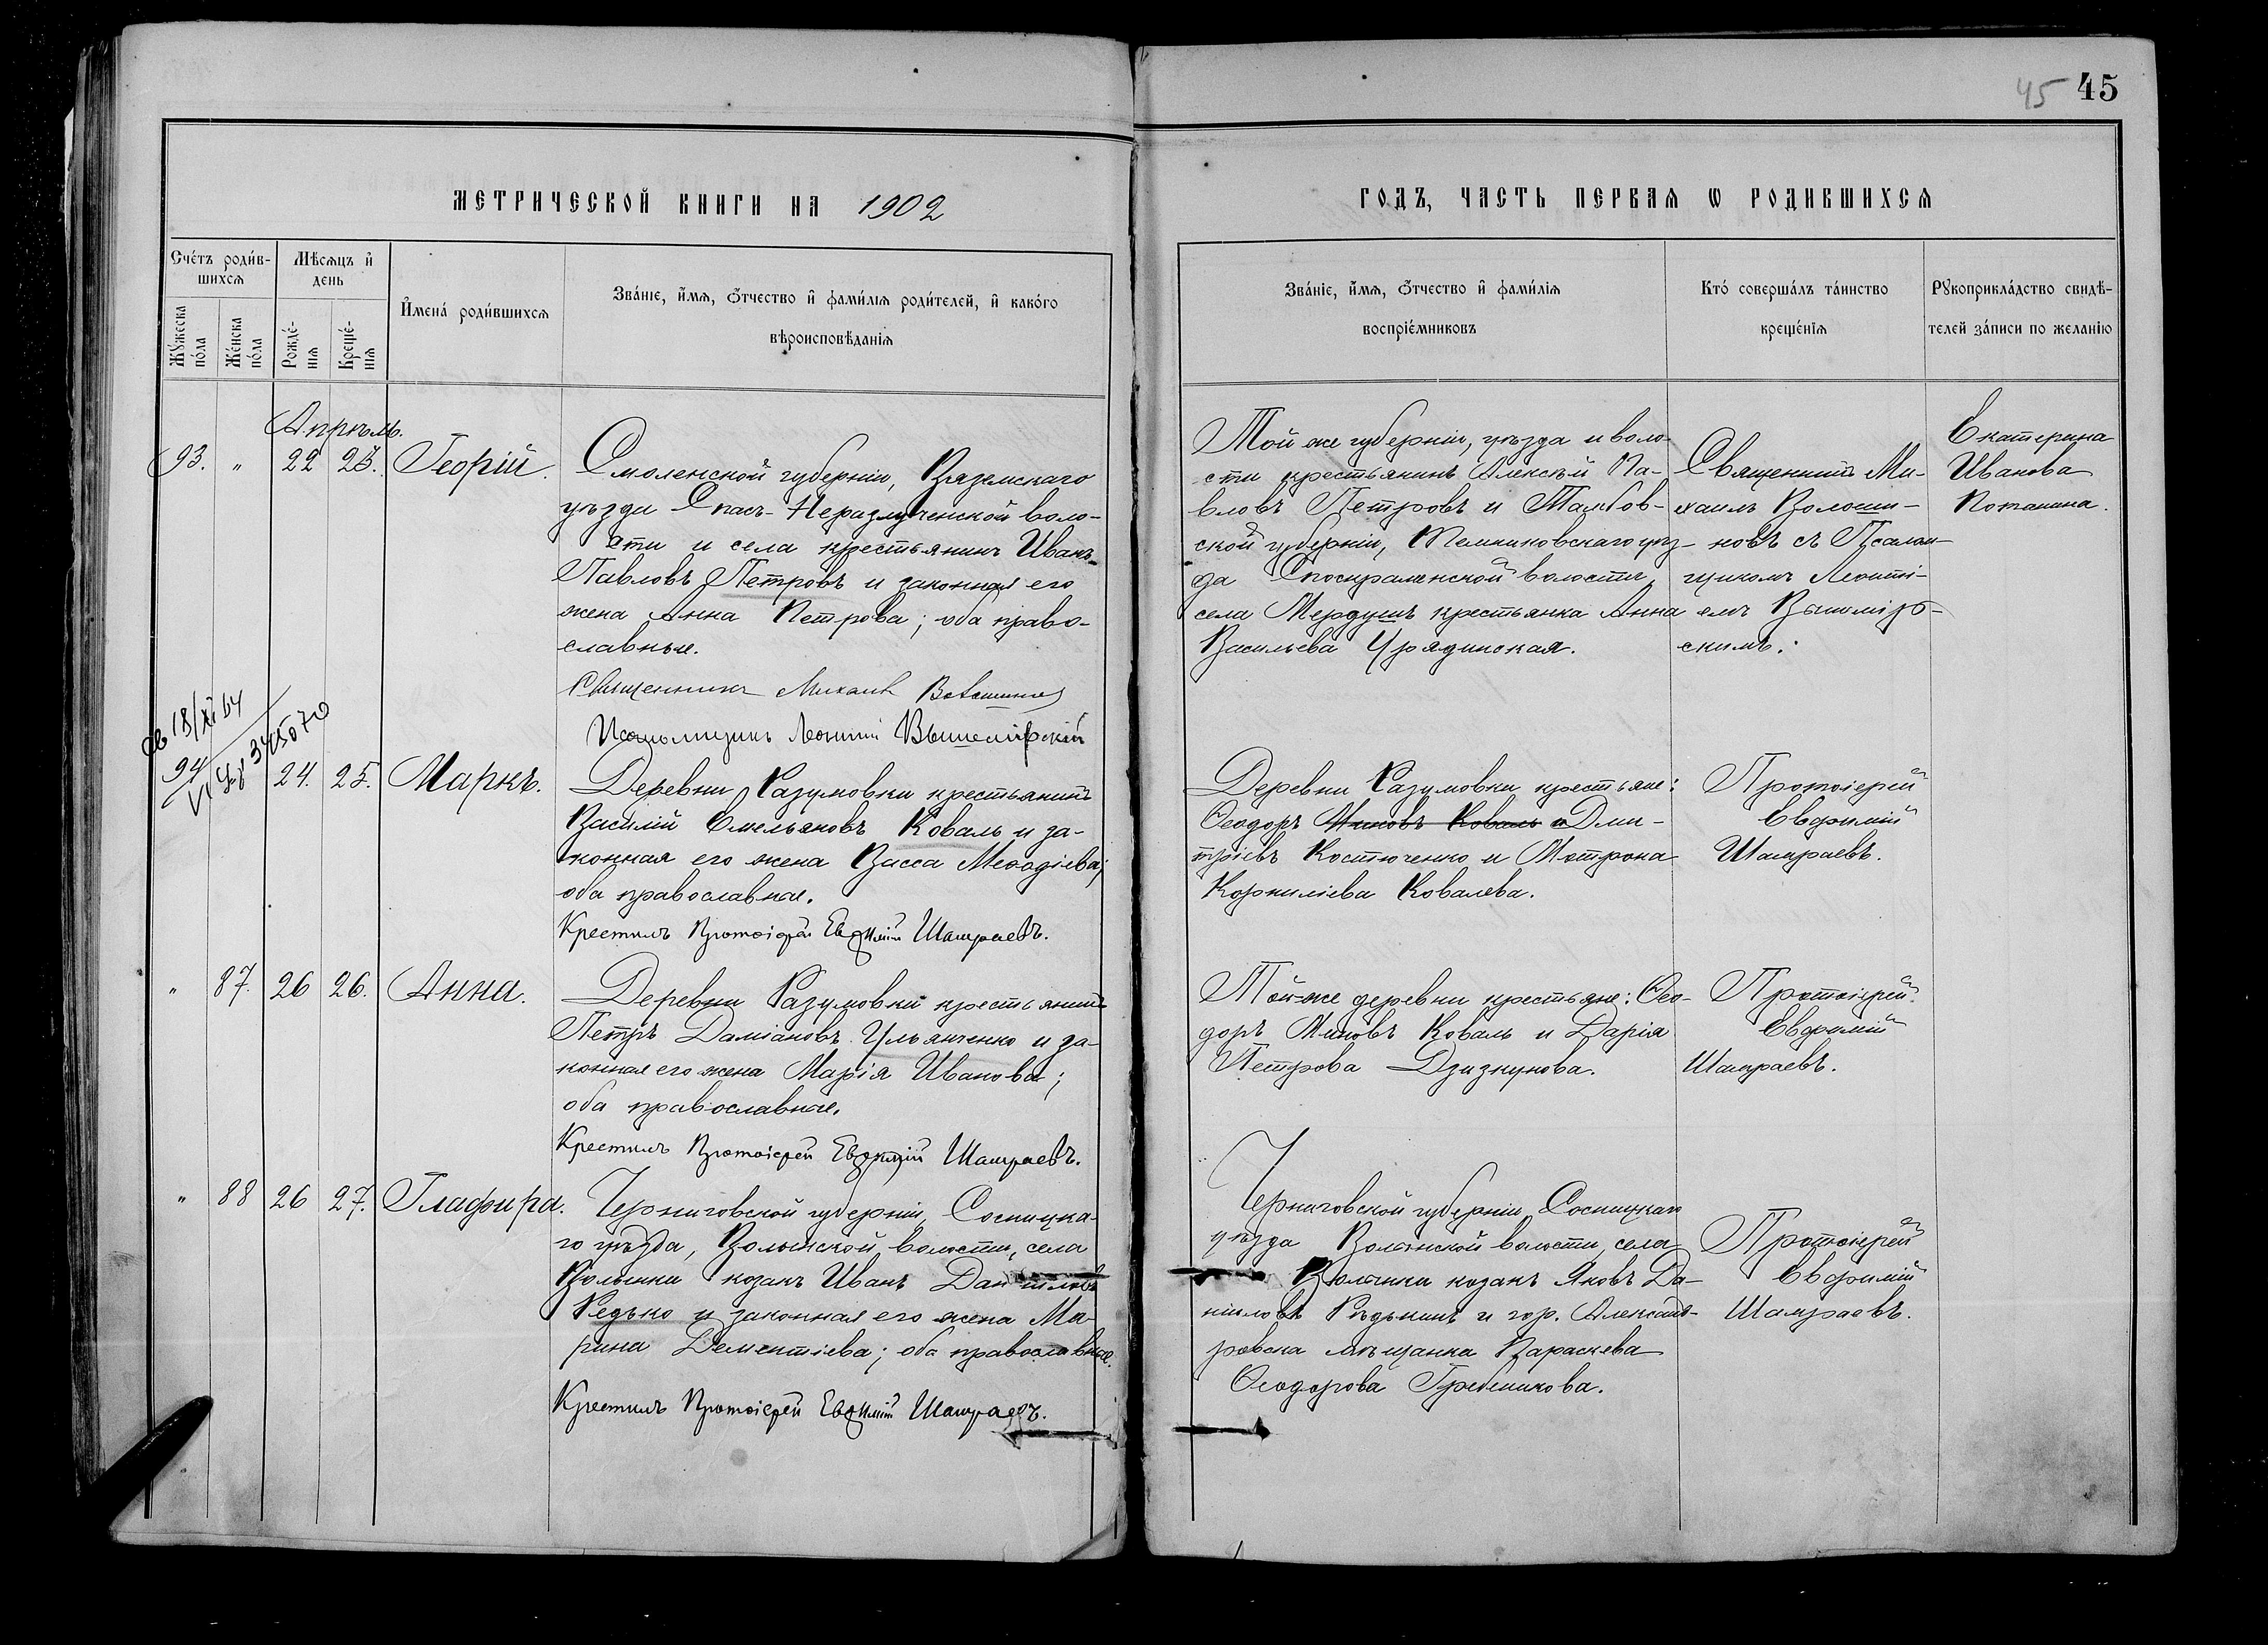 45 45
МЕТРИЧЕСКОЙ КНИГИ НА 1902
ГОДЪ, ЧАСТЬ ПЕРВАЯ Ѡ РОДИВШИХСЯ
Счетъ родив-
шихся
Мѣсяцъ и
день
Мужеска
пола
Женска
пола
Рожде-
нія
Креще-
нія
Имена родившихся
Званіе, имя, отчество и фамилія родителей, и какого
вѣроисповѣданія
Званіе, имя, отчество и фамилія
воспріемниковъ
Кто совершалъ таинство
крещенія
Рукоприкладство свидѣ-
телей записи по желанію
Апрѣль.
93. " 22 23. Георгій.
Смоленской губерніи, Вяземскаго
уѣзда Спасъ-Неразлученской воло-
сти и села крестьянинъ Иванъ
Павловъ Петровъ и законная его
жена Анна Петрова; оба право-
славные.
Священникъ Михаилъ Волошиновъ
Псаломщикъ Леонтій Вышемірскій
Той же губерніи, уѣзда и воло-
сти крестьянинъ Алексѣй Па-
вловъ Петровъ и Тамбов-
ской губерніи, Темниковскаго уѣз-
да волости,
села Мердушъ крестьянка Анна
Васильева Урядинская.
Священникъ Ми-
хаилъ Волоши-
новъ съ Псалом-
щикомъ Леонті-
емъ Вышемір-
скимъ.
Екатерина
Иванова
Потанина.
18/XI 54
345070
94 24. 25. Маркъ.
Деревни Разумовки крестьянинъ
Василій Емельяновъ Коваль и за-
конная его жена Васса Меѳодіева;
оба православные.
Крестилъ Протоіерей Евфимій Шамраевъ.
Деревни Разумовки крестьяне:
Ѳеодоръ Миновъ Коваль и Дми-
тріевъ Костюченко и Мотрона
Корниліева Ковалева.
Протоіерей
Евфимій
Шамраевъ.
" 87. 26 26. Анна.
Деревни Разумовки крестьянинъ
Петръ Даміановъ Ульянченко и за-
конная его жена Марія Иванова;
оба православные.
Крестилъ Протоіерей Евфимій Шамраевъ.
Той-же деревни крестьяне: Ѳео-
доръ Миновъ Коваль и Дарія
Петрова Дзизкунова.
Протоіерей
Евфимій
Шамраевъ.
" 88 26 27. Глафира.
Черниговской губерніи, Сосницка-
го уѣзда, Волынской волости, села
Волынки козакъ Иванъ Даніиловъ
Редько и законная его жена Ма-
рина Дементіева; оба православные.
Крестилъ Протоіерей Евфимій Шамраевъ.
Черниговской губерніи Сосницкаго
уѣзда Волынской волости, села
Волынки козакъ Яковъ Да-
ніиловъ Рѣдькинъ и гор. Александ-
ровска мѣщанка Параскева
Ѳеодорова Гребеникова.
Протоіерей
Евфимій
Шамраевъ.